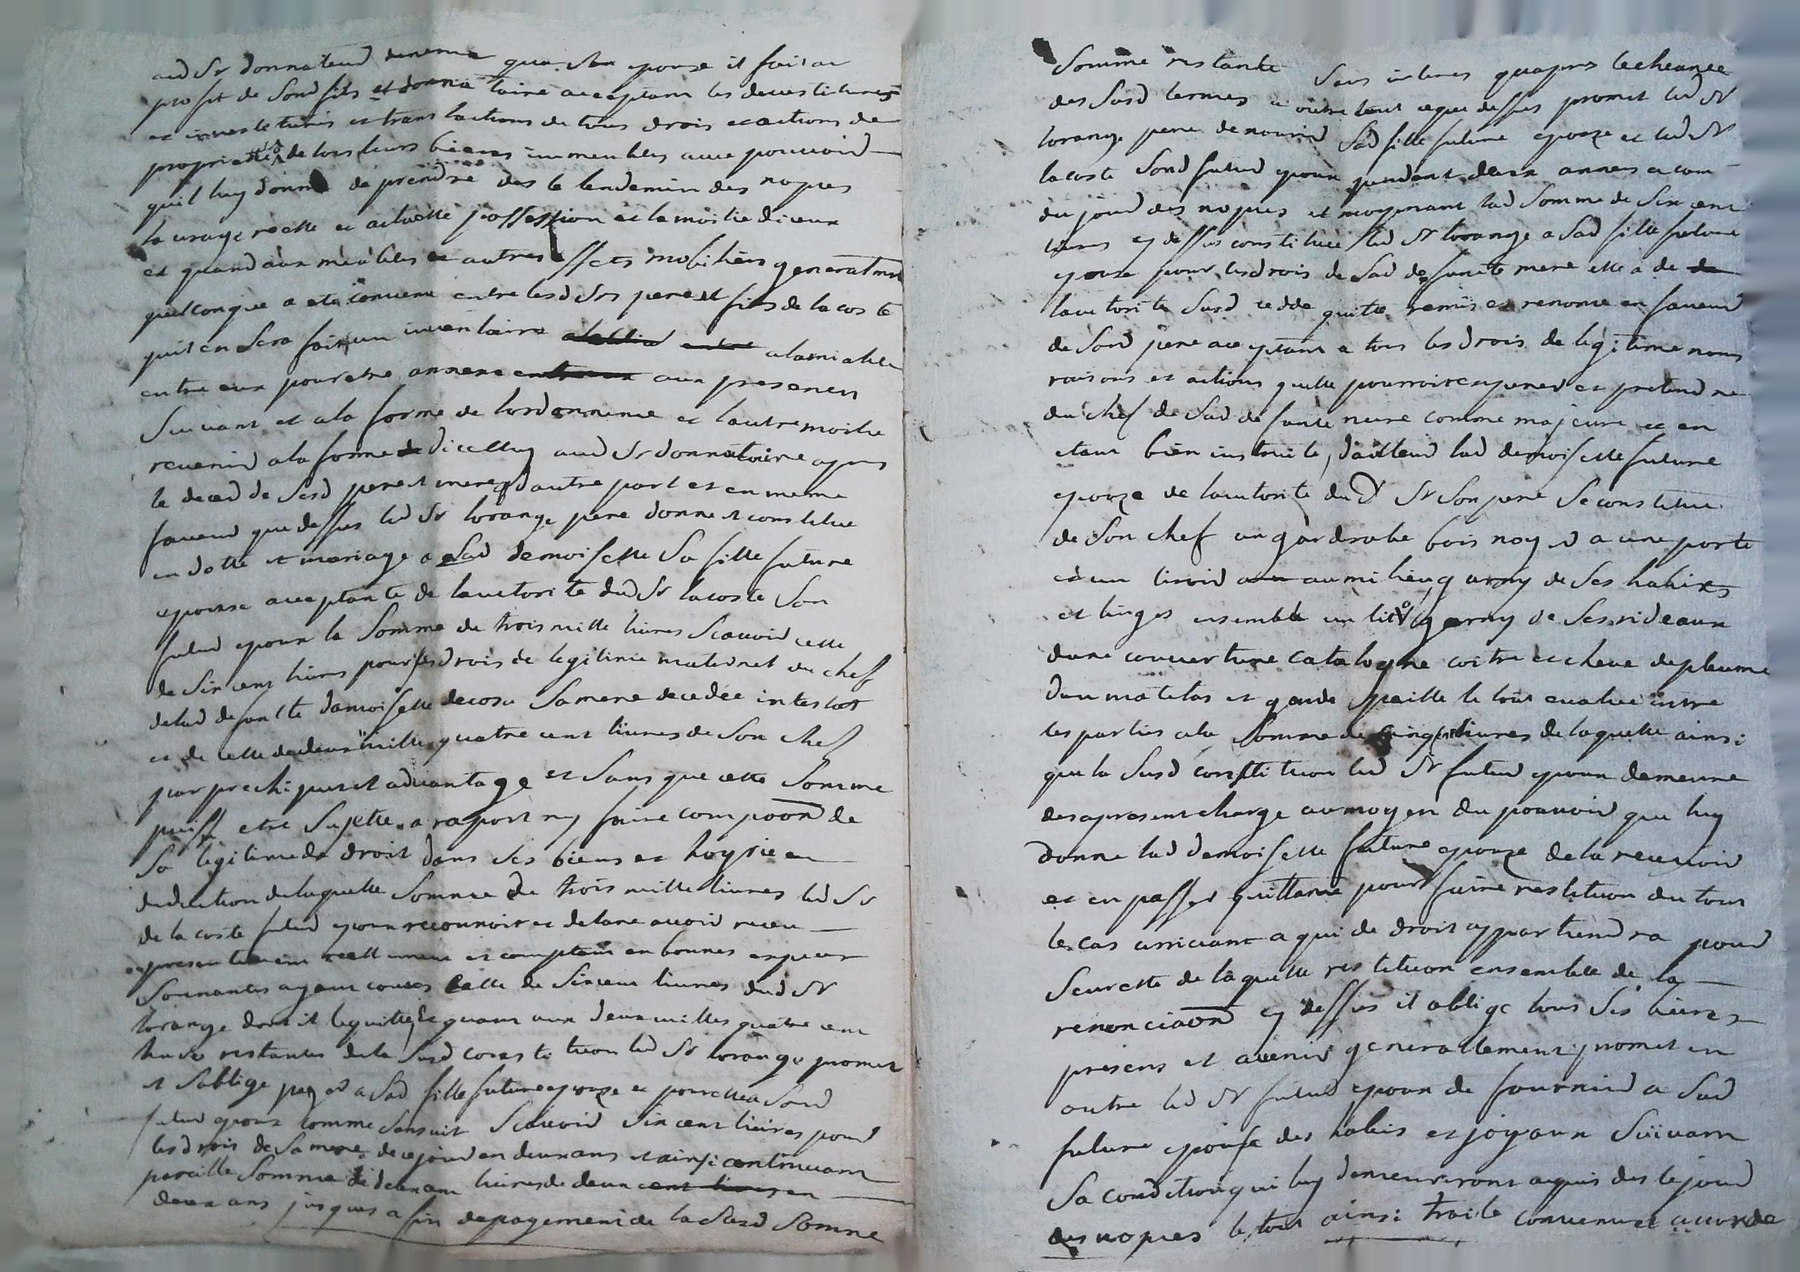 aud Sr donnateur de meme que Son epouse il fait au
profit de Sond fils et donnataire acceptant les devestitures
et investitures et translactions de tous drois et actions de
propriette de tous leurs biens immeubles avec pouvoir
quil luy donne de prendre des le lendemin des nopces
la usage reelle et actuelle possession et la moitie diceux
et quand aux meubles et autres effets mobiliers generalment
quelconque a ete convenu entre lesd Srs pere et fils de lacoste
quil en Sera fait un inventaire alamiable
entre eux pour etre annexe aux presentes
Suivant et ala forme de lordonnance et lautre moitie
revenir ala forme dicelluy aud Sr donnataire apres
le deced de Sesd pere et mere dautre part et en meme
faveur que dessus led Sr lorange pere donne et constitue
en dotte et mariage a Lad demoiselle Sa fille future
epouse acceptante de lauctorite dud Sr lacoste Son
futur epoux la Somme de trois mille livres Scavoir celle
de Six cent livres pour Ses drois de legitime maternel du chef
de lad defunte damoiselle decosu Sa mere decedée intestat
et de celle de deux mille quatre cent livres de Son chef
par prechiput et advantage et Sans que cette Somme
puisse etre Sujette a raport ny faire compoon de
Sa legitime de droit dans Ses biens et hoyrie en
deduction de laquelle Somme de trois mille livres led Sr
de lacoste futur epoux reconnoit et declare avoir receu
presentement reellement et comptant en bonnes especes
Sonnantes ayant cours celle de Six cent livres dud Sr
lorange dont il le quitte, et quant aux deux milles quatre cent
livres restantes de la Susd constitution led Sr lorange promet
et Soblige payer a Sad fille future epouze et pour elle a Sond
futur epoux comme Sensuit Scavoir Six cent livres pour
les drois de Sa mere de ce jour en deux ans et ainsi continuant
pareille Somme de deux cent livres de deux en
deux ans jusques a fin de pagement de la Susd Somme
Somme restante Sans interes quapres lecheance
des Susd termes et outre tout ce que dessus promet led Sr
lorange pere de nourrir Sad fille future epouze et led Sr
lacoste Sond futur epoux pendent deux annees a com
du jour des nopces et moyenant lad Somme de Six cent
livres cy dessus constituee led Sr lorange a Sad fille future
epouze pour lesdrois de Sad defunte mere elle a de
lauctorite Susd cedde quitte remis et renonce en faveur
de Sond pere acceptant a tous les drois de legitime noms
raisons et actions quelle pourroit esperer et pretendre
du chef de Sad defunte mere comme majeure et en
etant bien instruite, dailleur lad demoiselle future
epouze de lauctorite dud Sr Son pere Se constitue
de Son chef un gardrobe bois noyer a une porte
et un tiroir au milieu garny de Ses habits
et linges ensemble un lit garny de Ses rideaux
dune couverture catalogne coitre et cheve de plume
dun matelas et garde paille le tout evalué entre
les parties ala Somme de cinq cent livres de laquelle ainsi
que la Susd constitution led Sr futur epoux demeure
des apresent charge au moyen du pouvoir que luy
donne lad demoiselle future epouze de la recevoir
et en passer quittance pour faire restitution du tout
le cas arrivant a qui de droit appartiendra pour
Seurette de laquelle restitution ensemble de la
renonciaon cy dessus il oblige tous Ses biens
presens et avenir generallement promet en
outre led Sr futur epoux de fournir a Sad
future epouse des habis et joyaux Suivant
Sa condition qui luy demeureront aquis des le jour
des nopces le tout ainsi traite convenu et accorde